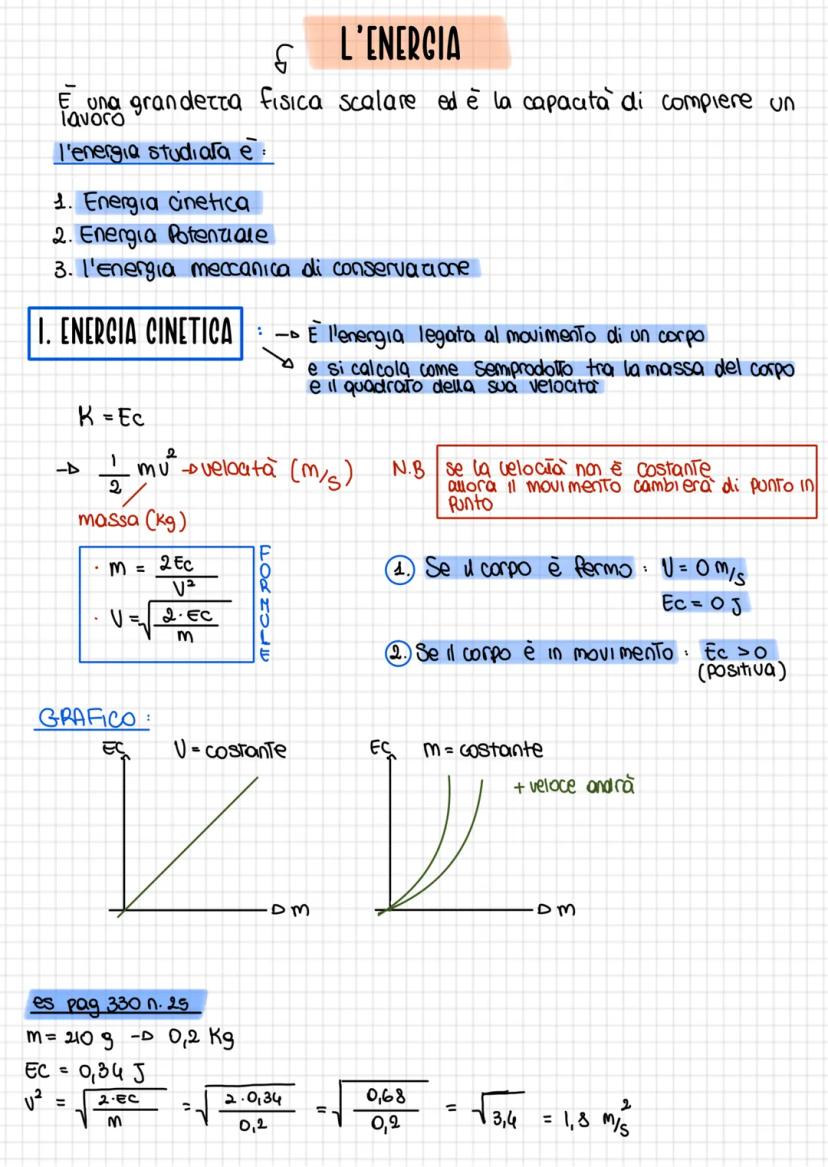 L'ENERGIA
È una grandezza fisica scalare ed è la capacità di compiere un
lavoro
l'energia studiata è:
1. Energia cinetica
2. Energia Potenziale
3. l'energia meccanica di conservazione
1. ENERGIA CINETICA : → È l'energia legata al movimento di un corpo
e si calcola come semprodotto tra la massa del corpo
e il quadrato della sua velocità
K = Ec
→ 1/2 mv² → velocità (m/s)
massa (kg)
N.B se la velocità non è costante
allora il movimento cambierà di punto in
punto
· m = 2Ec/V²
· V = √(2·Ec/m)
FORMULE
1. Se il corpo è fermo : V = 0 m/s
Ec = 0 J
2. Se il corpo è in movimento : Ec > 0
(positiva)
GRAFICO :
Ec V = costante
→ m
Ec m = costante
+ veloce andrà
→ m
es pag 330 n. 25
m = 210 g → 0,2 Kg
Ec = 0,34 J
v² = √(2·Ec/m) = √(2·0,34/0,2) = √(0,68/0,2) = √3,4 = 1,8 m/s²